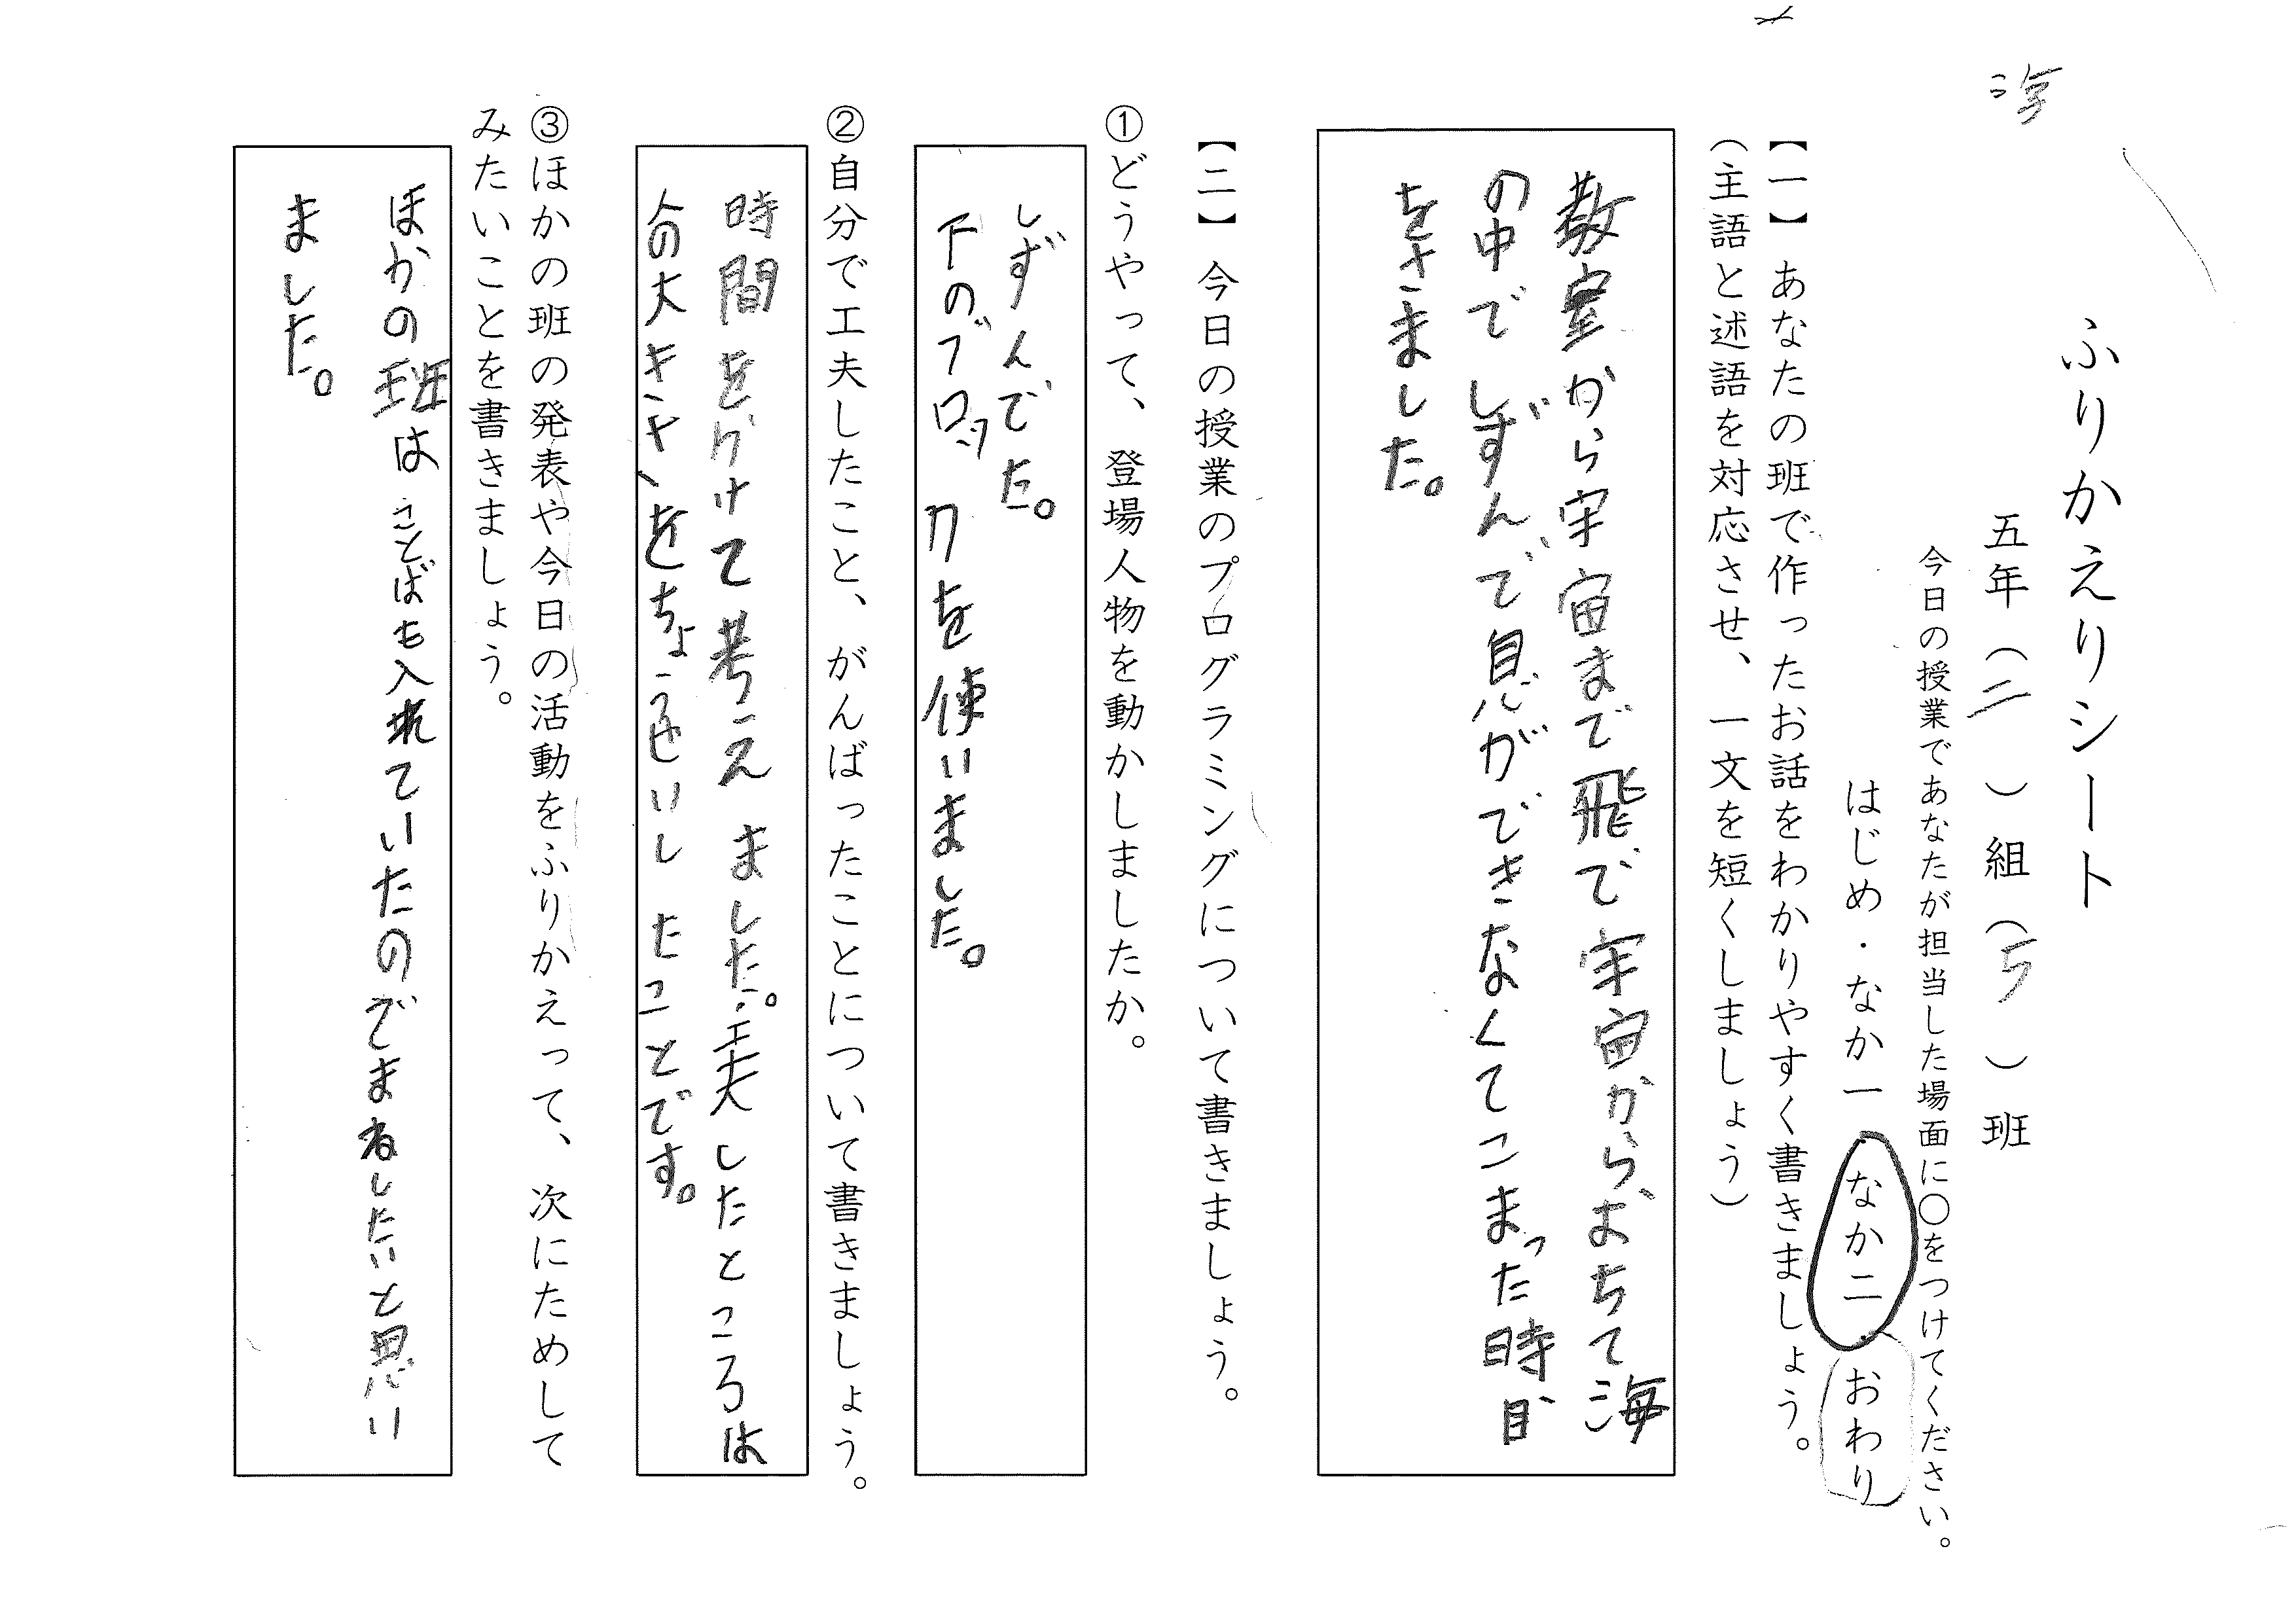 ふりかえりシート
五年（二）組（5）班
今日の授業であなたが担当した場面に○をつけてください。
はじめ・なか一　なか二　おわり
【一】あなたの班で作ったお話をわかりやすく書きましょう。
（主語と述語を対応させ、一文を短くしましょう）
教室から宇宙まで飛で宇宙から、おちて海
の中でしずんで息ができなくてこまった時目
をさました。
【二】今日の授業のプログラミングについて書きましょう。
①どうやって、登場人物を動かしましたか。
しずんでた。
下のブロックを使いました。
②自分で工夫したこと、がんばったことについて書きましょう。
時間をかけて考えました。工夫したところは
人の大きさをちょうせいしたことです。
③ほかの班の発表や今日の活動をふりかえって、次にためして
みたいことを書きましょう。
ほかの班はことばも入れていたのでまねしたいと思い
ました。